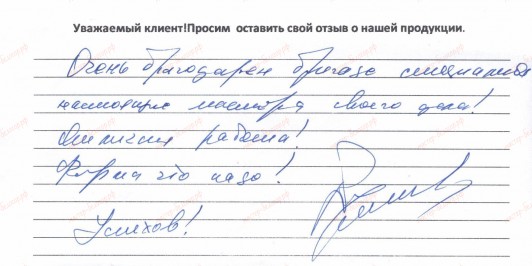 Уважаемый клиент!Просим оставить свой отзыв о нашей продукции.
Очень благодарен бригаде специалистов
настоящие мастера своего дела!
Отличная работа!
Фирма что надо!
Успехов!